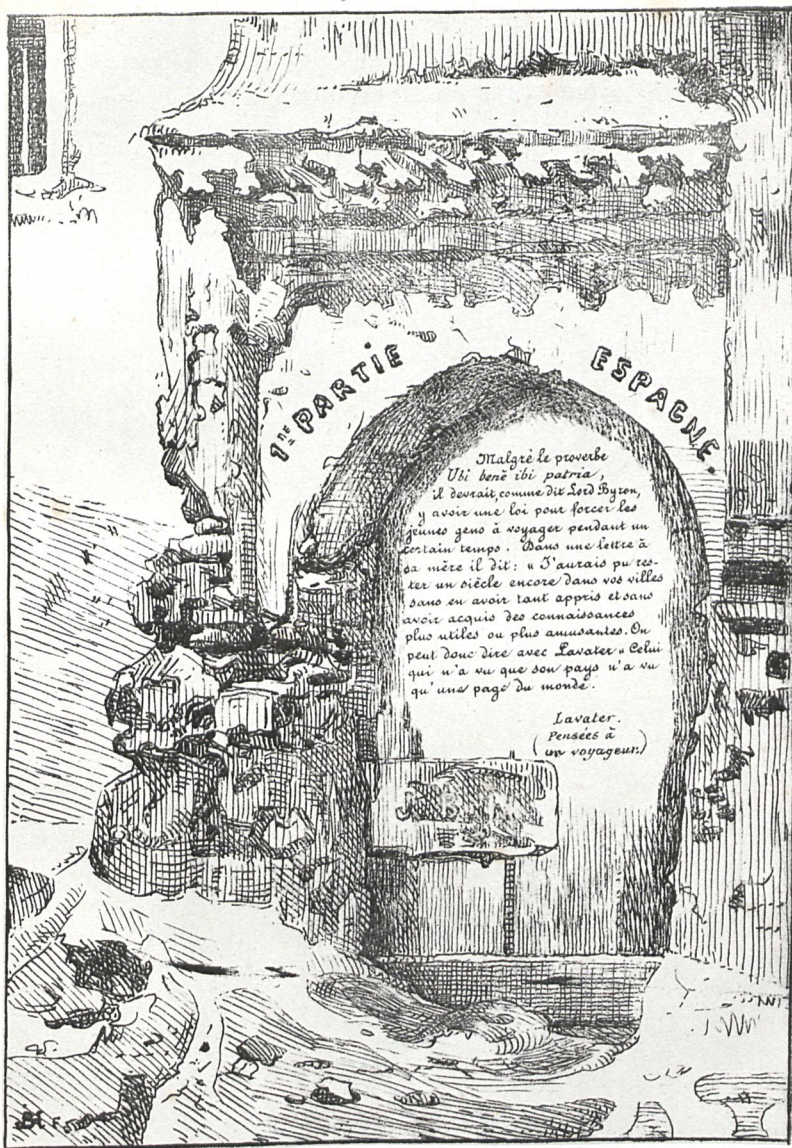 1re PARTIE ESPAGNE.
Malgré le proverbe
Ubi benè ibi patria,
il devrait, comme dit Lord Byron,
y avoir une loi pour forcer les
jeunes gens à voyager pendant un
certain temps. Dans une lettre à
sa mère il dit: « J'aurais pu res-
ter un siècle encore dans vos villes
sans en avoir tant appris et sans
avoir acquis des connaissances
plus utiles ou plus amusantes. On
peut donc dire avec Lavater « Celui
qui n'a vu que son pays n'a vu
qu'une page du monde.
Lavater.
(Pensées à
un voyageur.)